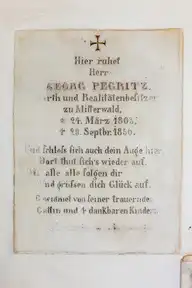 Hier ruhet
Herr
GEORG PEGRITZ,
und Realitätenbesitzer
zu Mitterwald,
24. März
† 28. Septbr. 1860.
schloss sich auch dein Auge hier
Dort thut sich's wieder auf.
alle alle folgen dir
grüssen dich Glück auf.
Gewidmet von seiner trauernden
Gattin und 4 dankbaren Kindern.